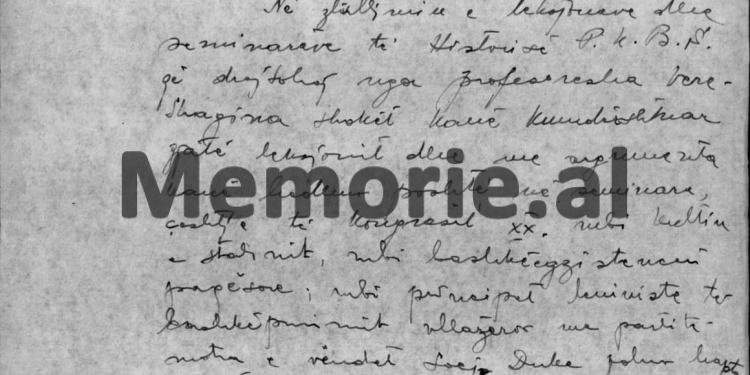 Në zhvillimin e leksioneve dhe
seminarëve të Historisë P.K.B.S.
që drejtohej nga profesoresha Vere-
shagina shokët kanë kundërshtuar
gjatë leksionit dhe me argumenta
Memorie.al
kanë hedhur poshtë në seminare,
çështje të Kongresit XX. mbi kultin
e Stalinit, mbi bashkëegzistencën
paqësore; mbi principet leniniste të
bashkëpunimit vllazëror me partitë
motra e vëndet Socj. Duke folur hapt